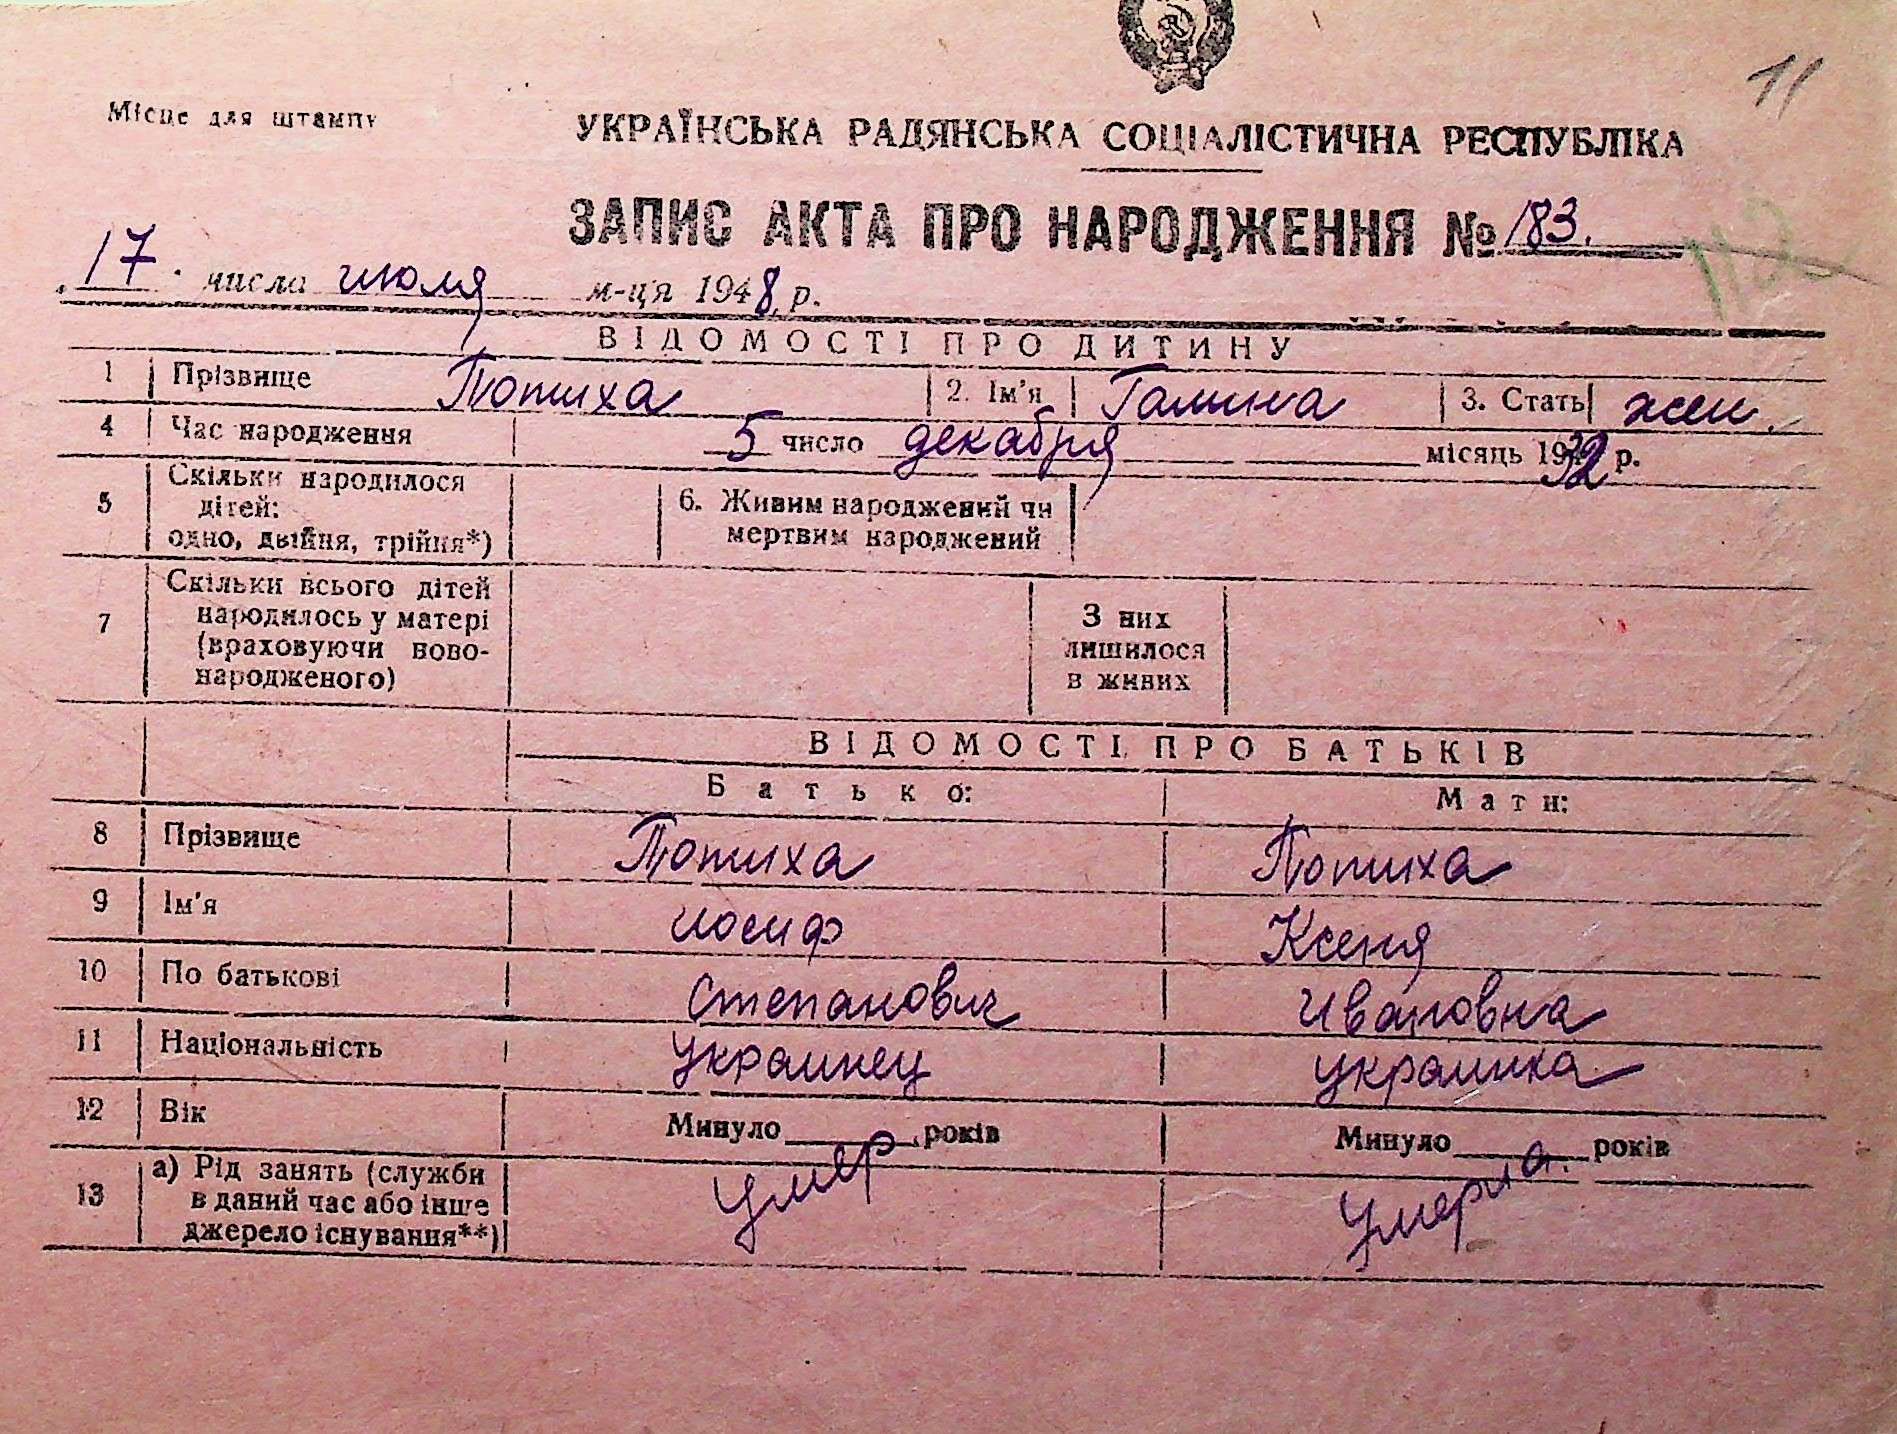 11
Місце для штампу
УКРАЇНСЬКА РАДЯНСЬКА СОЦІАЛІСТИЧНА РЕСПУБЛІКА
ЗАПИС АКТА ПРО НАРОДЖЕННЯ № 183.
112
17 числа июля м-ця 1948 р.
ВІДОМОСТІ ПРО ДИТИНУ
1 Прізвище Потиха 2. Ім'я Галина 3. Стать жен.
4 Час народження 5 число декабря місяць 1932 р.
5 Скільки народилося дітей: одно, двійня, трійня*) 6. Живим народжений чи мертвим народжений
7 Скільки всього дітей народилось у матері (враховуючи ново-народженого) З них лишилося в живих
ВІДОМОСТІ ПРО БАТЬКІВ
Батько: Мати:
8 Прізвище Потиха Потиха
9 Ім'я Иосиф Ксеня
10 По батькові Степанович Ивановна
11 Національність Украинец украинка
12 Вік Минуло років Минуло років
13 а) Рід занять (служби в даний час або інше джерело існування**) Умер Умерла.